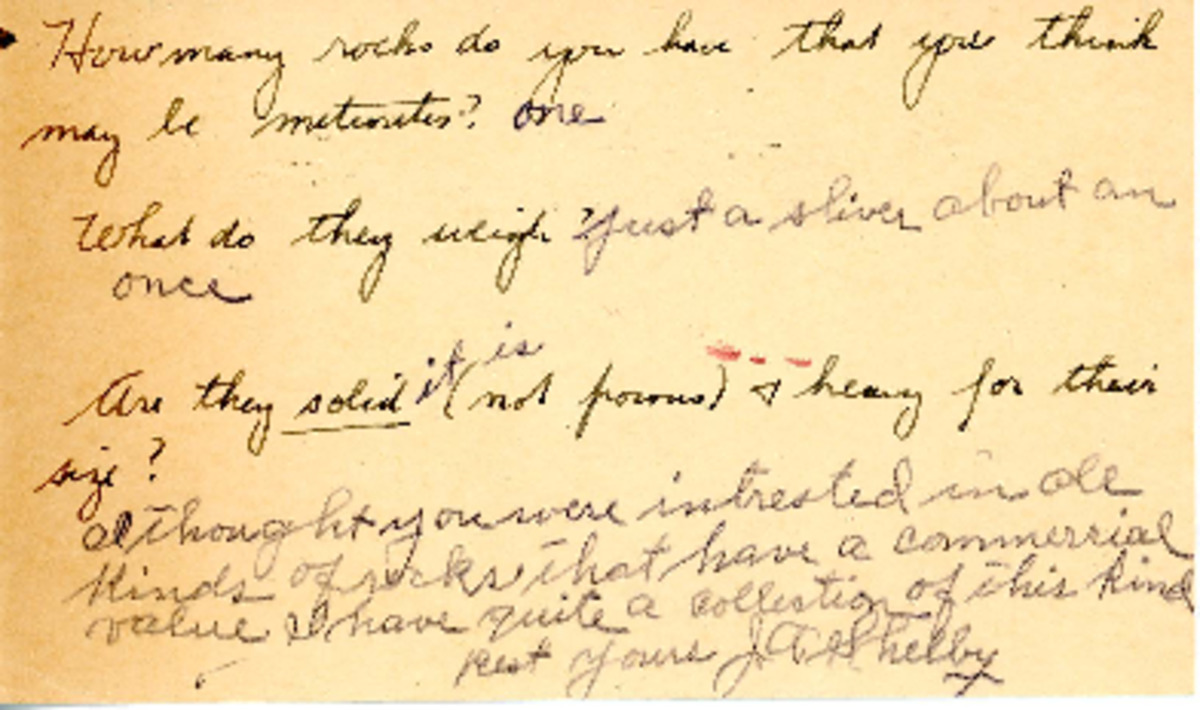 How many rocks do you have that you think
may be meteorites? one
What do they weigh? Just a sliver about an
once
Are they solid it is (not porous) & heavy for their
size?
I thought you were intrested in ole
kinds of rocks that have a commercial
value I have quite a collection of this kind
Rest yours J. Shelby